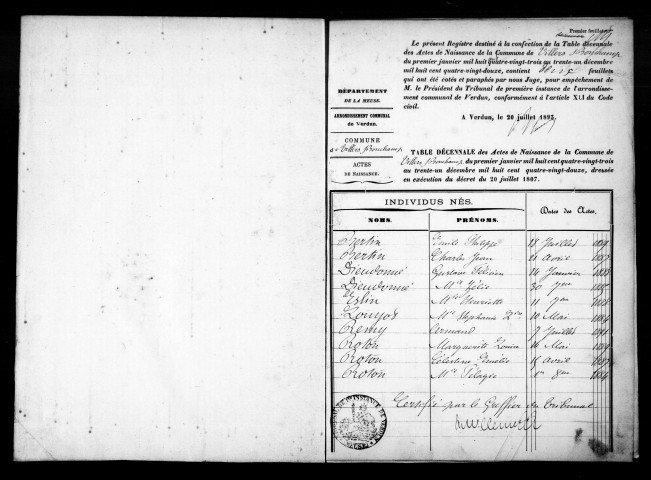 Premier feuillet
Le présent Registre destiné à la confection de la Table décennale
des Actes de Naissance de la Commune de Villers Bouchamp
du premier janvier mil huit cent quatre-vingt-trois au trente-un décembre
mil huit cent quatre-vingt-douze, contient feuillets
qui ont été cotés et paraphés par nous Juge, pour empêchement de
M. le Président du Tribunal de première instance de l'arrondisse-
ment communal de Verdun, conformément à l'article XLI du Code
civil.
A Verdun, le 20 juillet 1893.
DÉPARTEMENT
DE LA MEUSE.
ARRONDISSEMENT COMMUNAL
de Verdun.
COMMUNE
de Villers Bouchamp
ACTES
DE NAISSANCE.
TABLE DÉCENNALE des Actes de Naissance de la Commune de
Villers Bouchamp, du premier janvier mil huit cent quatre-vingt-trois
au trente-un décembre mil huit cent quatre-vingt-douze, dressée
en exécution du décret du 20 juillet 1807.
INDIVIDUS NÉS.
NOMS. PRÉNOMS. Dates des Actes.
Bertin Emile Philippe 18 Juillet
Bertin Charles Jean 21 avril 1887
Dieudonné Gustave Félicien 14 Janvier 1888
Dieudonné Mie Zélie 30 7bre
Estin Henriette 11
Louyot Mie Stéphanie 10 Mai
Remy Armand 7 Juillet 1891
Roton Marguerite Louise 16 Mai
Roton Célestine 15 avril 1887
Roton Mie Pélagie 8bre 1884
Certifié par le Greffier du tribunal